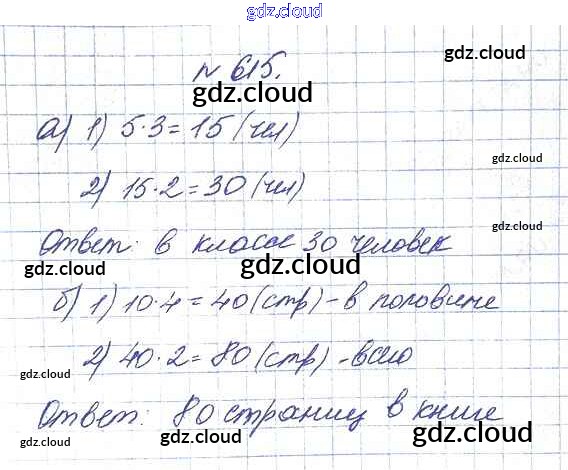 gdz.cloud
gdz.cloud
№ 615.
gdz.cloud
а) 1) 5·3=15 (чел)
gdz.cloud
gdz.cloud
2) 15·2=30 (чел)
gdz.cloud
gdz.cloud
Ответ: в классе 30 человек
gdz.cloud
gdz.cloud
б) 1) 10·4=40 (стр)-в половине
2) 40·2=80 (стр)-всего
gdz.cloud
gdz.cloud
Ответ: 80 страниц в книге
gdz.cloud
gdz.cloud
gdz.cloud